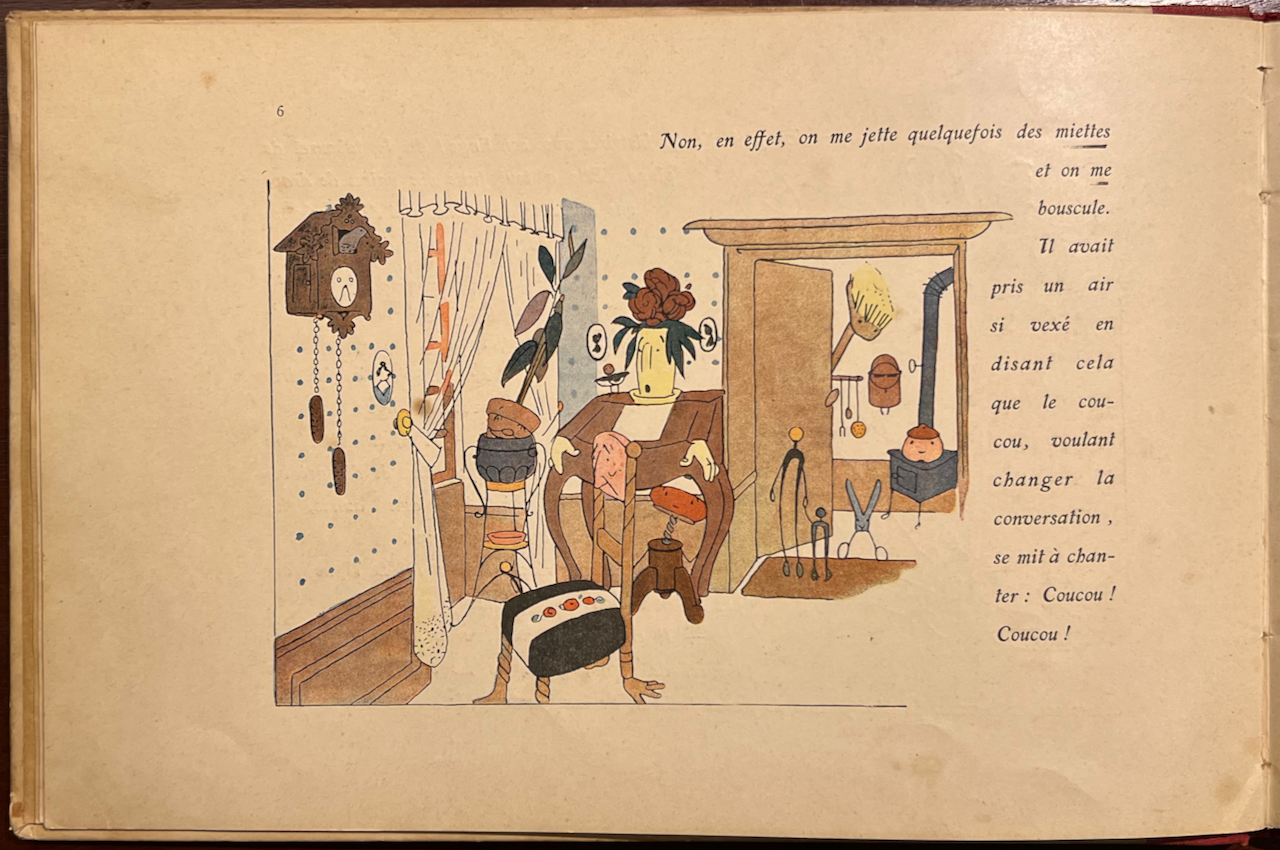 6
Non, en effet, on me jette quelquefois des miettes
et on me
bouscule.
Il avait
pris un air
si vexé en
disant cela
que le cou-
cou, voulant
changer la
conversation ,
se mit à chan-
ter : Coucou !
Coucou !